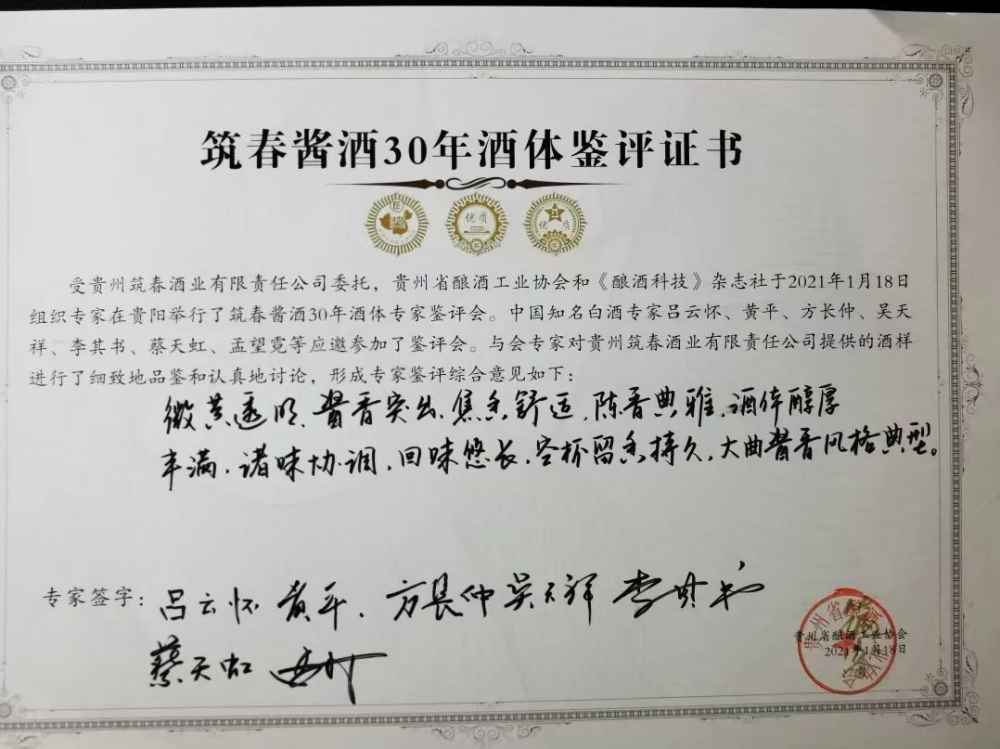 筑春酱酒30年酒体鉴评证书
优质
优质
受贵州筑春酒业有限责任公司委托，贵州省酿酒工业协会和《酿酒科技》杂志社于2021年1月18日
组织专家在贵阳举行了筑春酱酒30年酒体专家鉴评会。中国知名白酒专家吕云怀、黄平、方长仲、吴天
祥、李其书、蔡天虹、孟望霓等应邀参加了鉴评会。与会专家对贵州筑春酒业有限责任公司提供的酒样
进行了细致地品鉴和认真地讨论，形成专家鉴评综合意见如下：
微黄透明、酱香突出、焦香舒适、陈香典雅、酒体醇厚
丰满、诸味协调、回味悠长、空杯留香持久，大曲酱香风格典型。
专家签字：吕云怀 黄平、方長仲 吴天祥 李其书
蔡天虹
贵州省酿酒工业协会
2021年1月18日